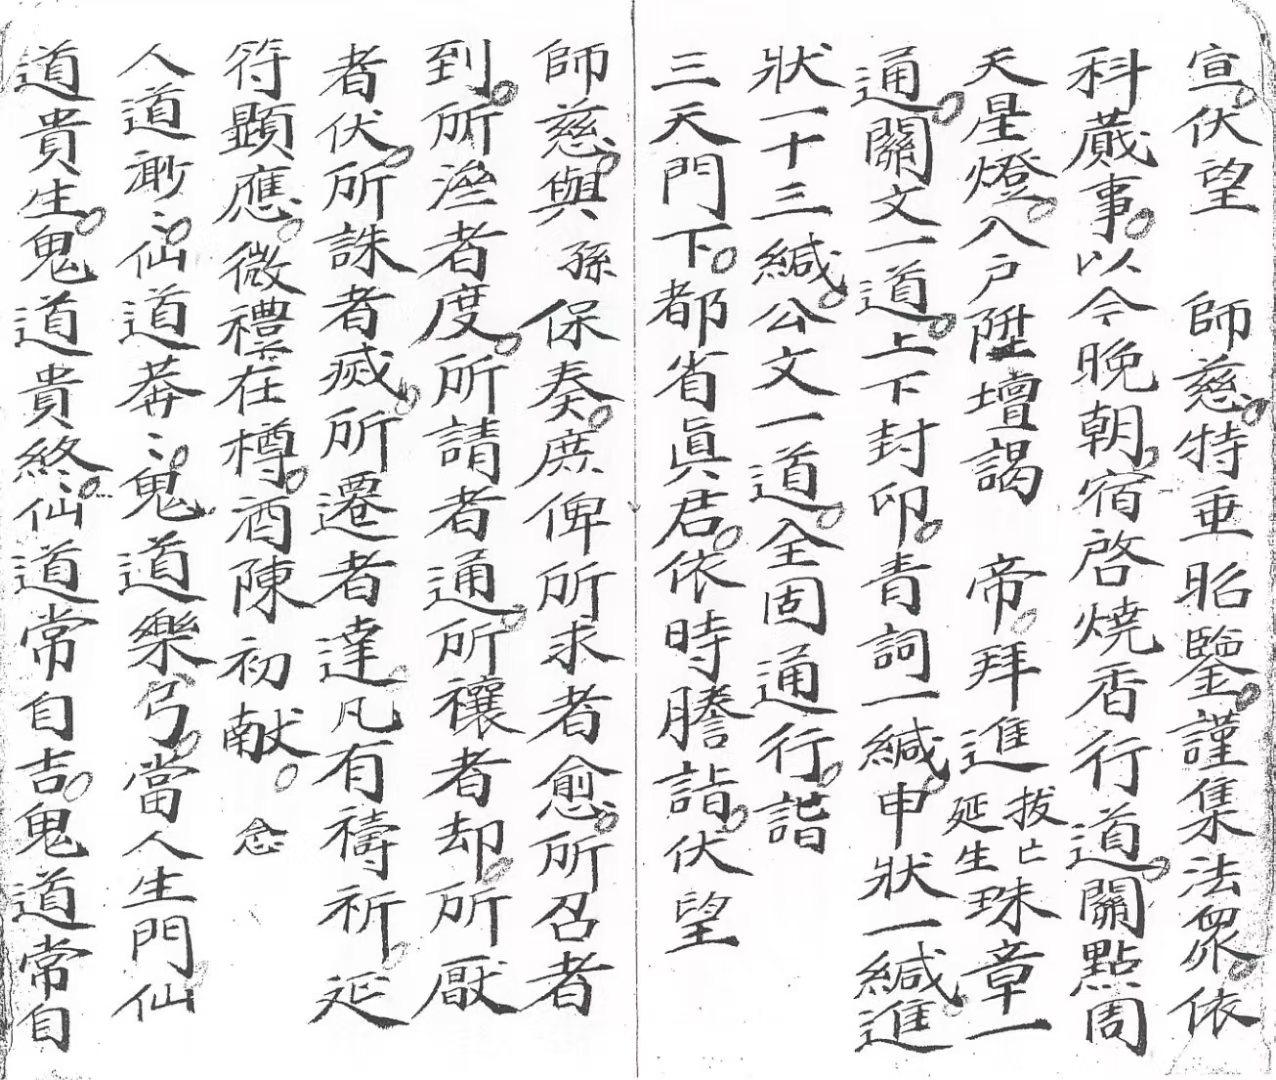 宣伏望　師慈特垂昭鑒謹集法眾依
科蕆事以今晚朝宿啓燒香行道關點周
天星燈入戶陞壇謁　帝拜進拔亡延生珠章一
通關文一道上下封印青詞一緘申狀一緘進
狀一十三緘公文一道全固通行詣
三天門下都省眞君依時謄詣伏望
師慈與孫保奏庶俾所求者愈所召者
到所滏者度所請者通所禳者却所厭
者伏所誅者滅所遷者達凡有禱祈延
符顯應微禮在樽酒陳初献念
人道渺〻仙道莾〻鬼道樂兮當人生門仙
道貴生鬼道貴終仙道常自吉鬼道常自